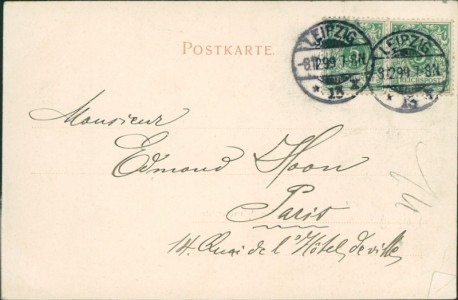 POSTKARTE.
LEIPZIG
-8/12 99. 7-8N.
* 13 *
LEIPZIG
-8/12 99. 7-8N.
* 13 *
REICHSPOST
Monsieur
Edmond Hoon
Paris
14. Quai de l'Hôtel de ville